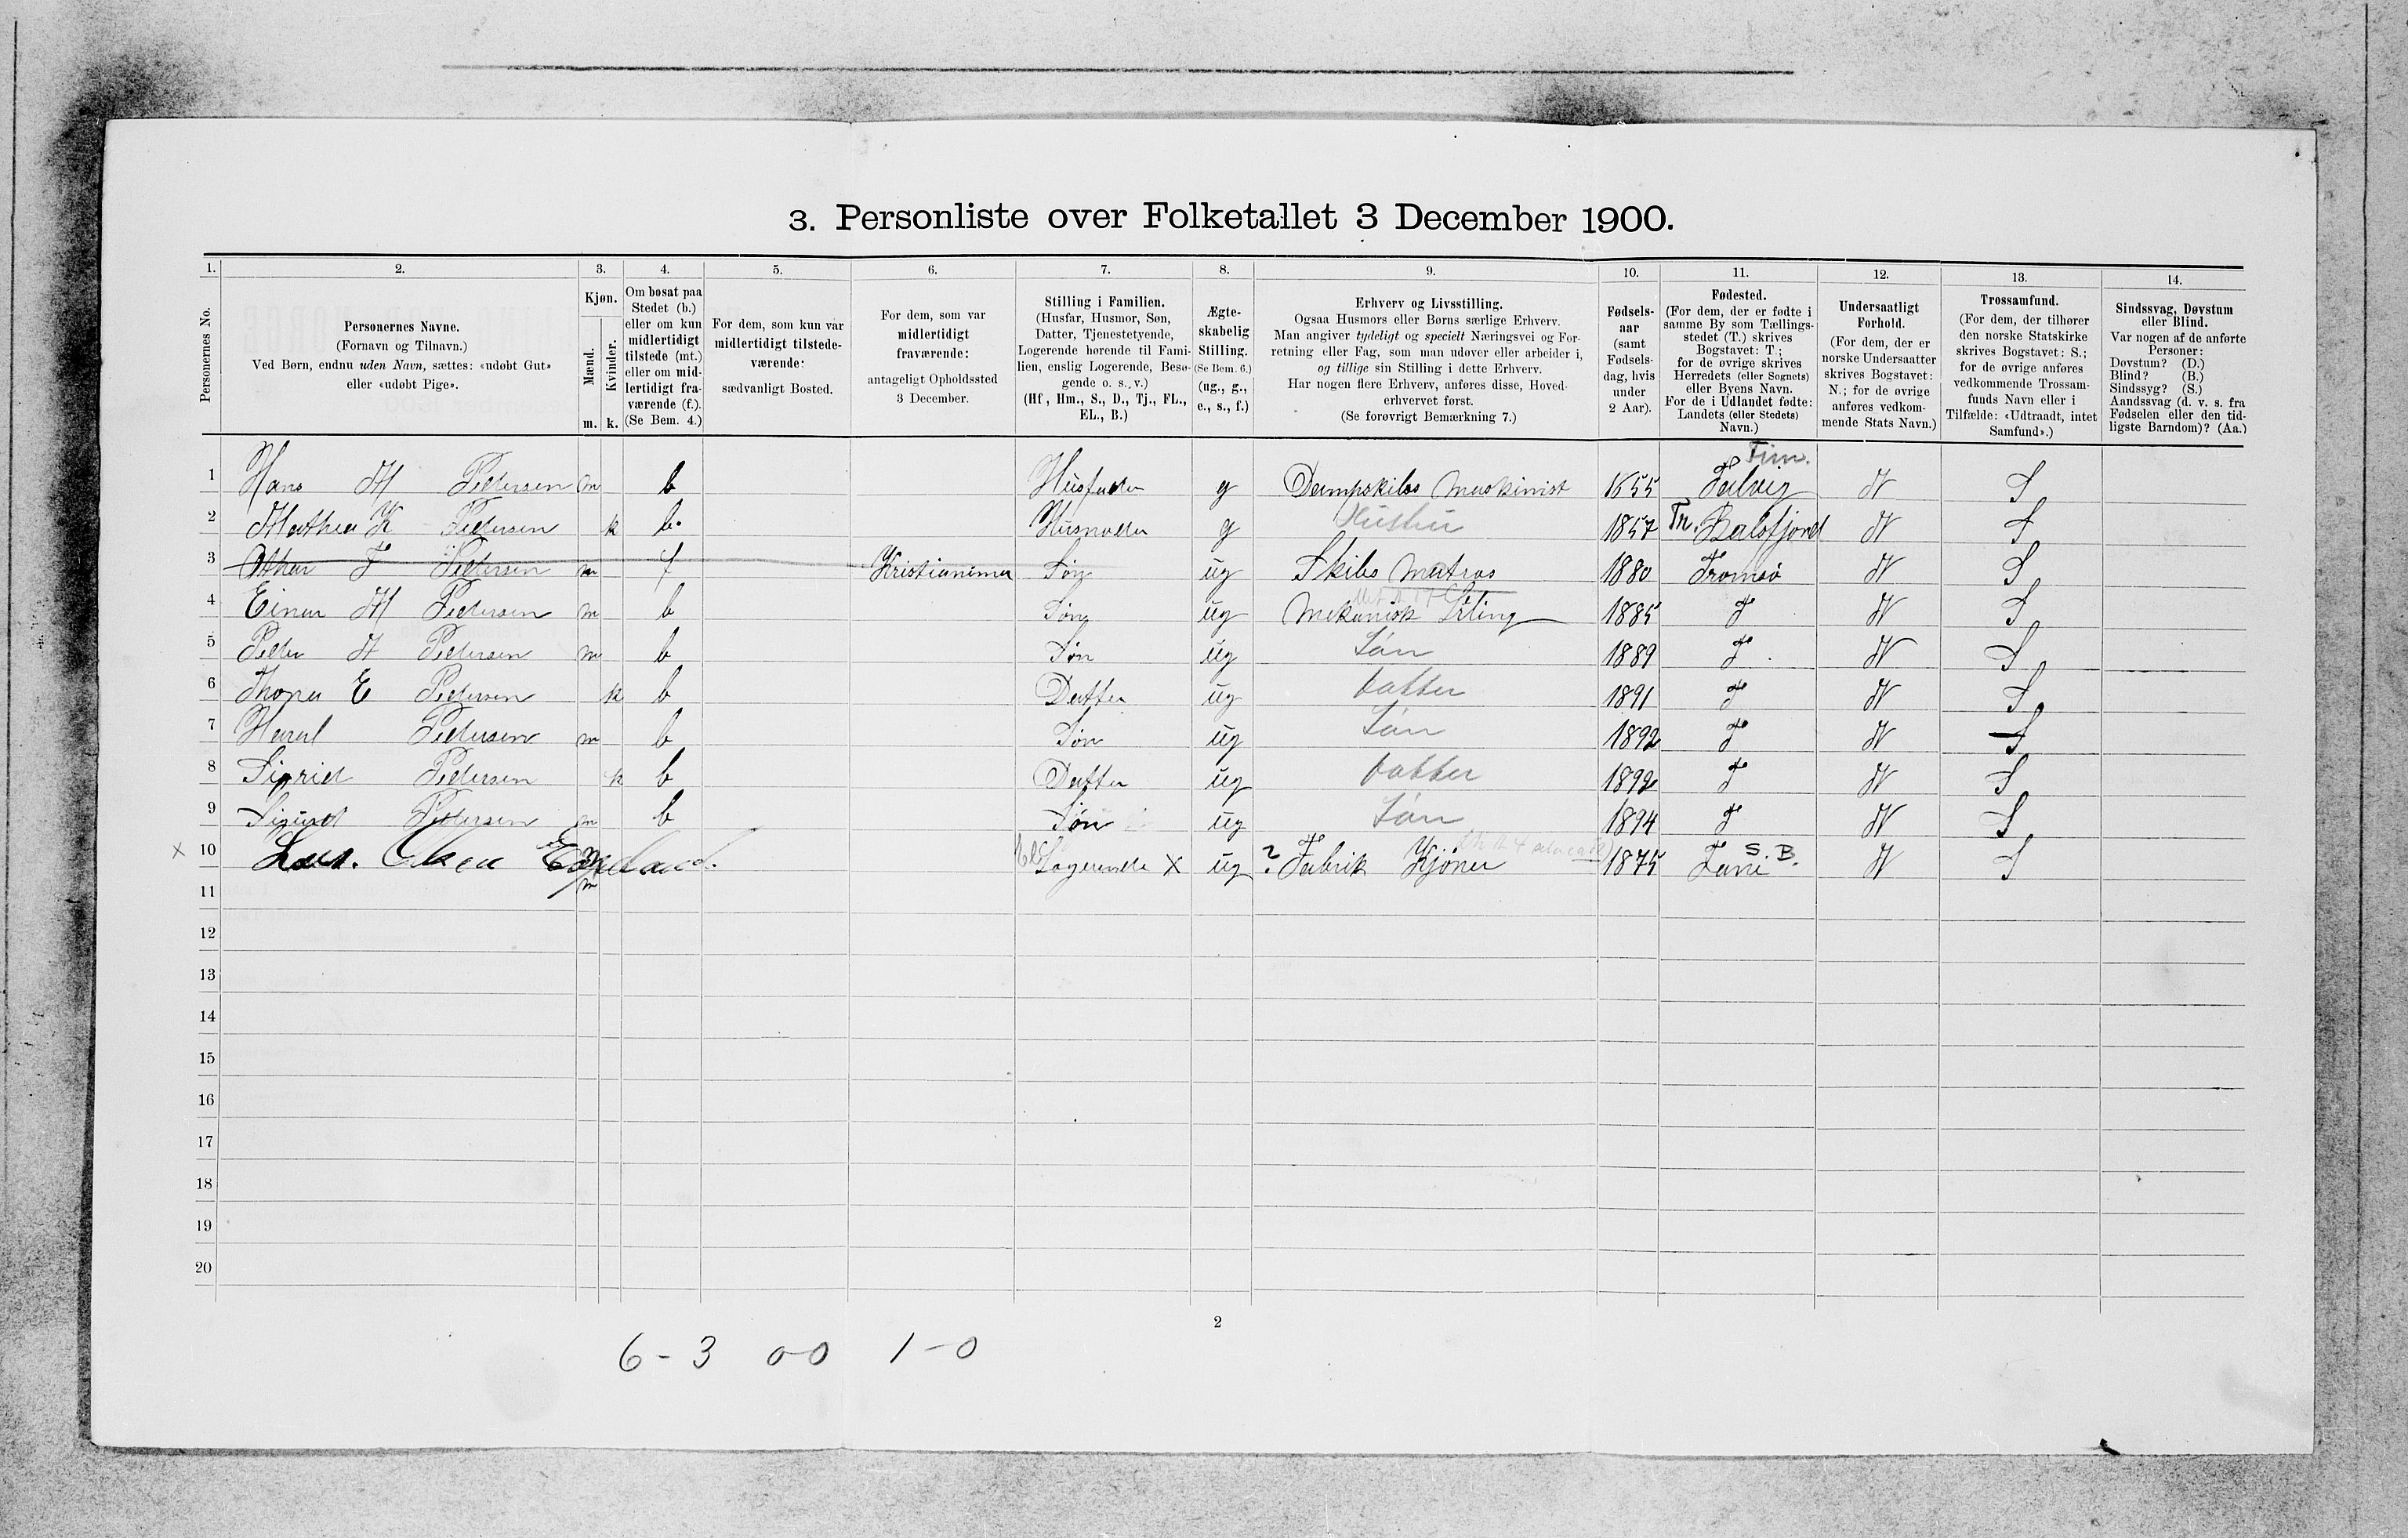 3. Personliste over Folketallet 3 December 1900.
1. 2. 3. 4. 5. 6. 7. 8. 9. 10. 11. 12. 13. 14.
Personernes No.
Personernes Navne.
(Fornavn og Tilnavn.)
Ved Børn, endnu uden Navn, sættes: «udøbt Gut»
eller «udøbt Pige».
Kjøn.
Mænd.
Kvinder.
m. k.
Om bosat paa
Stedet (b.)
eller om kun
midlertidigt
tilstede (mt.)
eller om mid-
lertidigt fra-
værende (f.).
(Se Bem. 4.)
For dem, som kun var
midlertidigt tilstede-
værende:
sædvanligt Bosted.
For dem, som var
midlertidigt
fraværende:
antageligt Opholdssted
3 December.
Stilling i Familien.
(Husfar, Husmor, Søn,
Datter, Tjenestetyende,
Logerende hørende til Fami-
lien, enslig Logerende, Besø-
gende o. s. v.)
(Hf, Hm., S., D., Tj., FL.,
EL., B.)
Ægte-
skabelig
Stilling.
(Se Bem. 6.)
(ug., g.,
e., s., f.)
Erhverv og Livsstilling.
Ogsaa Husmors eller Børns særlige Erhverv.
Man angiver tydeligt og specielt Næringsvei og For-
retning eller Fag, som man udøver eller arbeider i,
og tillige sin Stilling i dette Erhverv.
Har nogen flere Erhverv, anføres disse, Hoved-
erhvervet først.
(Se forøvrigt Bemærkning 7.)
Fødsels-
aar
(samt
Fødsels-
dag, hvis
under
2 Aar).
Fødested.
(For dem, der er fødte i
samme By som Tællings-
stedet (T.) skrives
Bogstavet: T.;
for de øvrige skrives
Herredets (eller Sognets)
eller Byens Navn.
For de i Udlandet fødte:
Landets (eller Stedets)
Navn.)
Undersaatligt
Forhold.
(For dem, der er
norske Undersaatter
skrives Bogstavet:
N.; for de øvrige
anføres vedkom-
mende Stats Navn.)
Trossamfund.
(For dem, der tilhører
den norske Statskirke
skrives Bogstavet: S.;
for de øvrige anføres
vedkommende Trossam-
funds Navn eller i
Tilfælde: «Udtraadt, intet
Samfund».)
Sindssvag, Døvstum
eller Blind.
Var nogen af de anførte
Personer:
Døvstum? (D.)
Blind? (B.)
Sindssyg? (S.)
Aandssvag (d. v. s. fra
Fødselen eller den tid-
ligste Barndom)? (Aa.)
Finm.
1 Hans H Pedersen m b Husfader g Dampskibs Maskinist 1855 Talvig N S
2 Mathea K Pedersen k b. Husmoder g Hustru 1857 Tr. Balsfjord N S
3 Othar F Pedersen m f Kristianima Søn ug Skibs Matros 1880 Tromsø N S
4 Einar H Pedersen m b Søn ug Mekanisk 1885 T N S
5 Peder H Pedersen m b Søn ug Søn 1889 T. N S
6 Thora E Pedersen k b Datter ug Datter 1891 T N S
7 Haral Pedersen m b Søn ug Søn 1892 T N S
8 Sigrid Pedersen k b Datter ug Datter 1892 T N S
9 Sigurd Pedersen m b Søn ug Søn 1894 T N S
S. B.
x 10 Lars. Olsen m Logerende X ug ? Fabrik Kjører 1875 N S
11
12
13
14
15
16
17
18
19
20
2
6-3 0-0 1-0